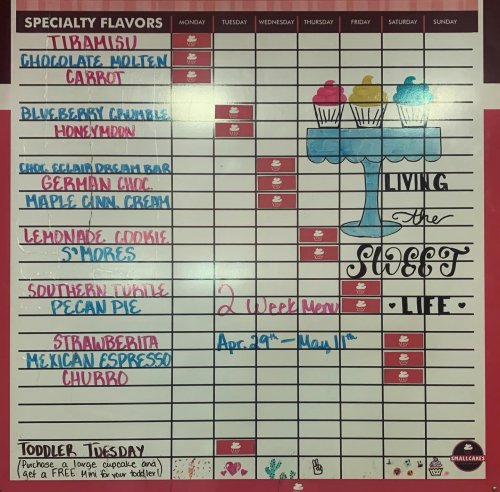 SPECIALTY FLAVORS MONDAY TUESDAY WEDNESDAY THURSDAY FRIDAY SATURDAY SUNDAY
TIRAMISU
CHOCOLATE MOLTEN
CARROT
BLUEBERRY CRUMBLE
HONEYMOON
CHOC. ECLAIR DREAM BAR
GERMAN CHOC.
MAPLE CINN. CREAM
LIVING
the
LEMONADE COOKIE
S'MORES
SWEET
SOUTHERN TURTLE
PECAN PIE
2 Week Menu
LIFE
STRAWBERITA
Apr. 29th - May 11th
MEXICAN ESPRESSO
CHURRO
TODDLER TUESDAY
(Purchase a large cupcake and
get a FREE Mini for your toddler!)
SMALLCAKES